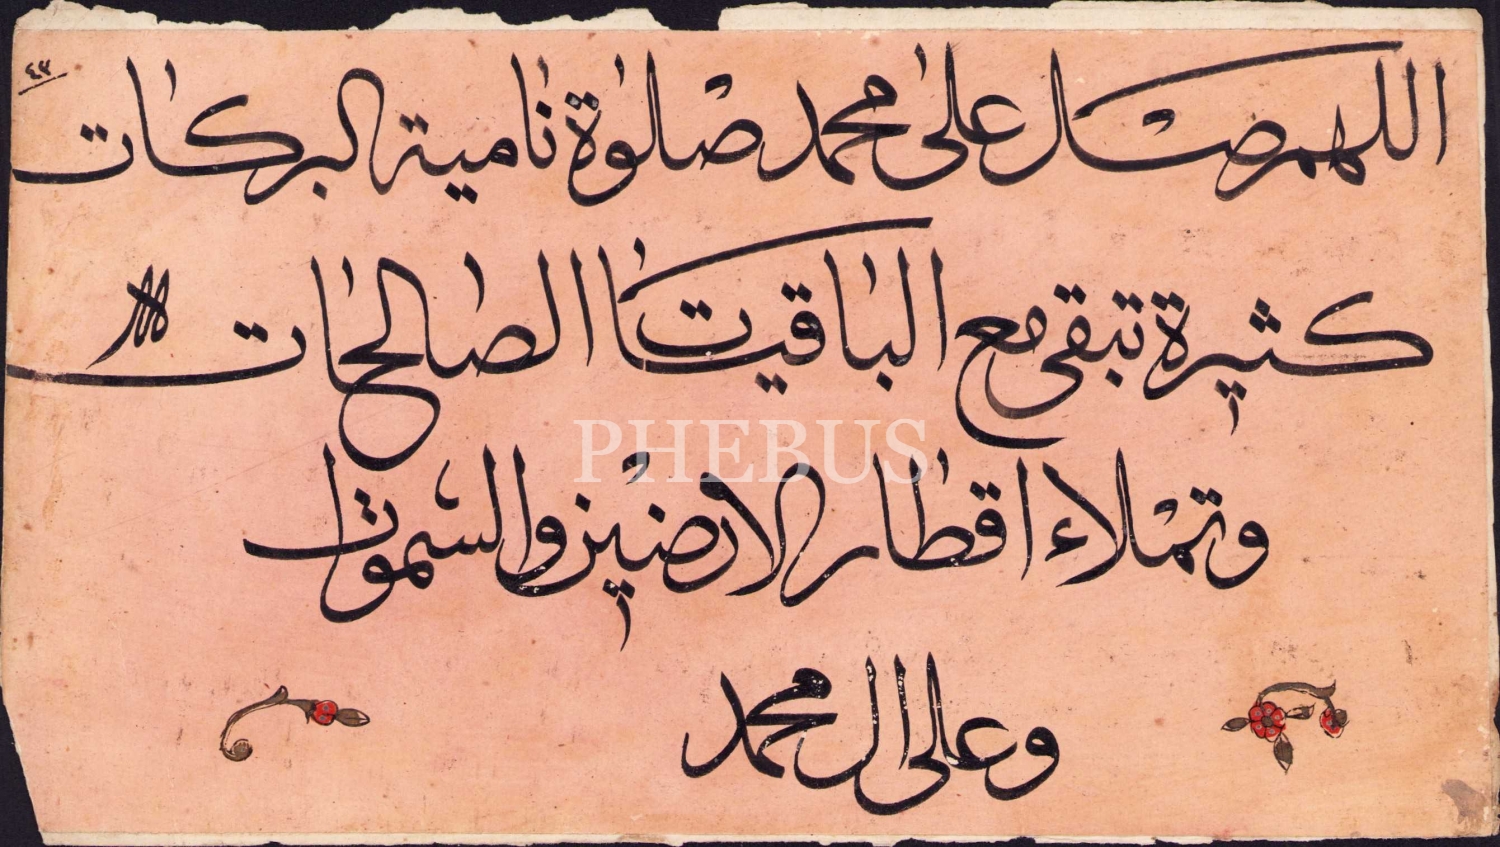 ٤٣
اللهم صل على محمد صلوة نامية البركات
كثيرة تبقى مع الباقيات الصالحات
PHEBUS
وتملاء اقطار الارضين والسموات
وعلى ال محمد